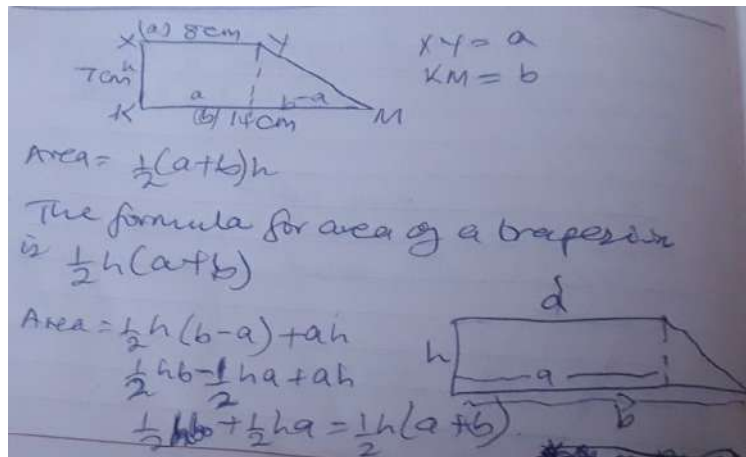 X (a) 8cm Y
XY = a
7cm h
KM = b
a b-a
K (b) 14cm M
Area = 1/2(a+b)h
The formula for area of a trapezium
is 1/2 h(a+b)
d
Area = 1/2 h(b-a) + ah
h
1/2 hb - 1/2 ha + ah
a
1/2 hb + 1/2 ha = 1/2 h(a+b)
b